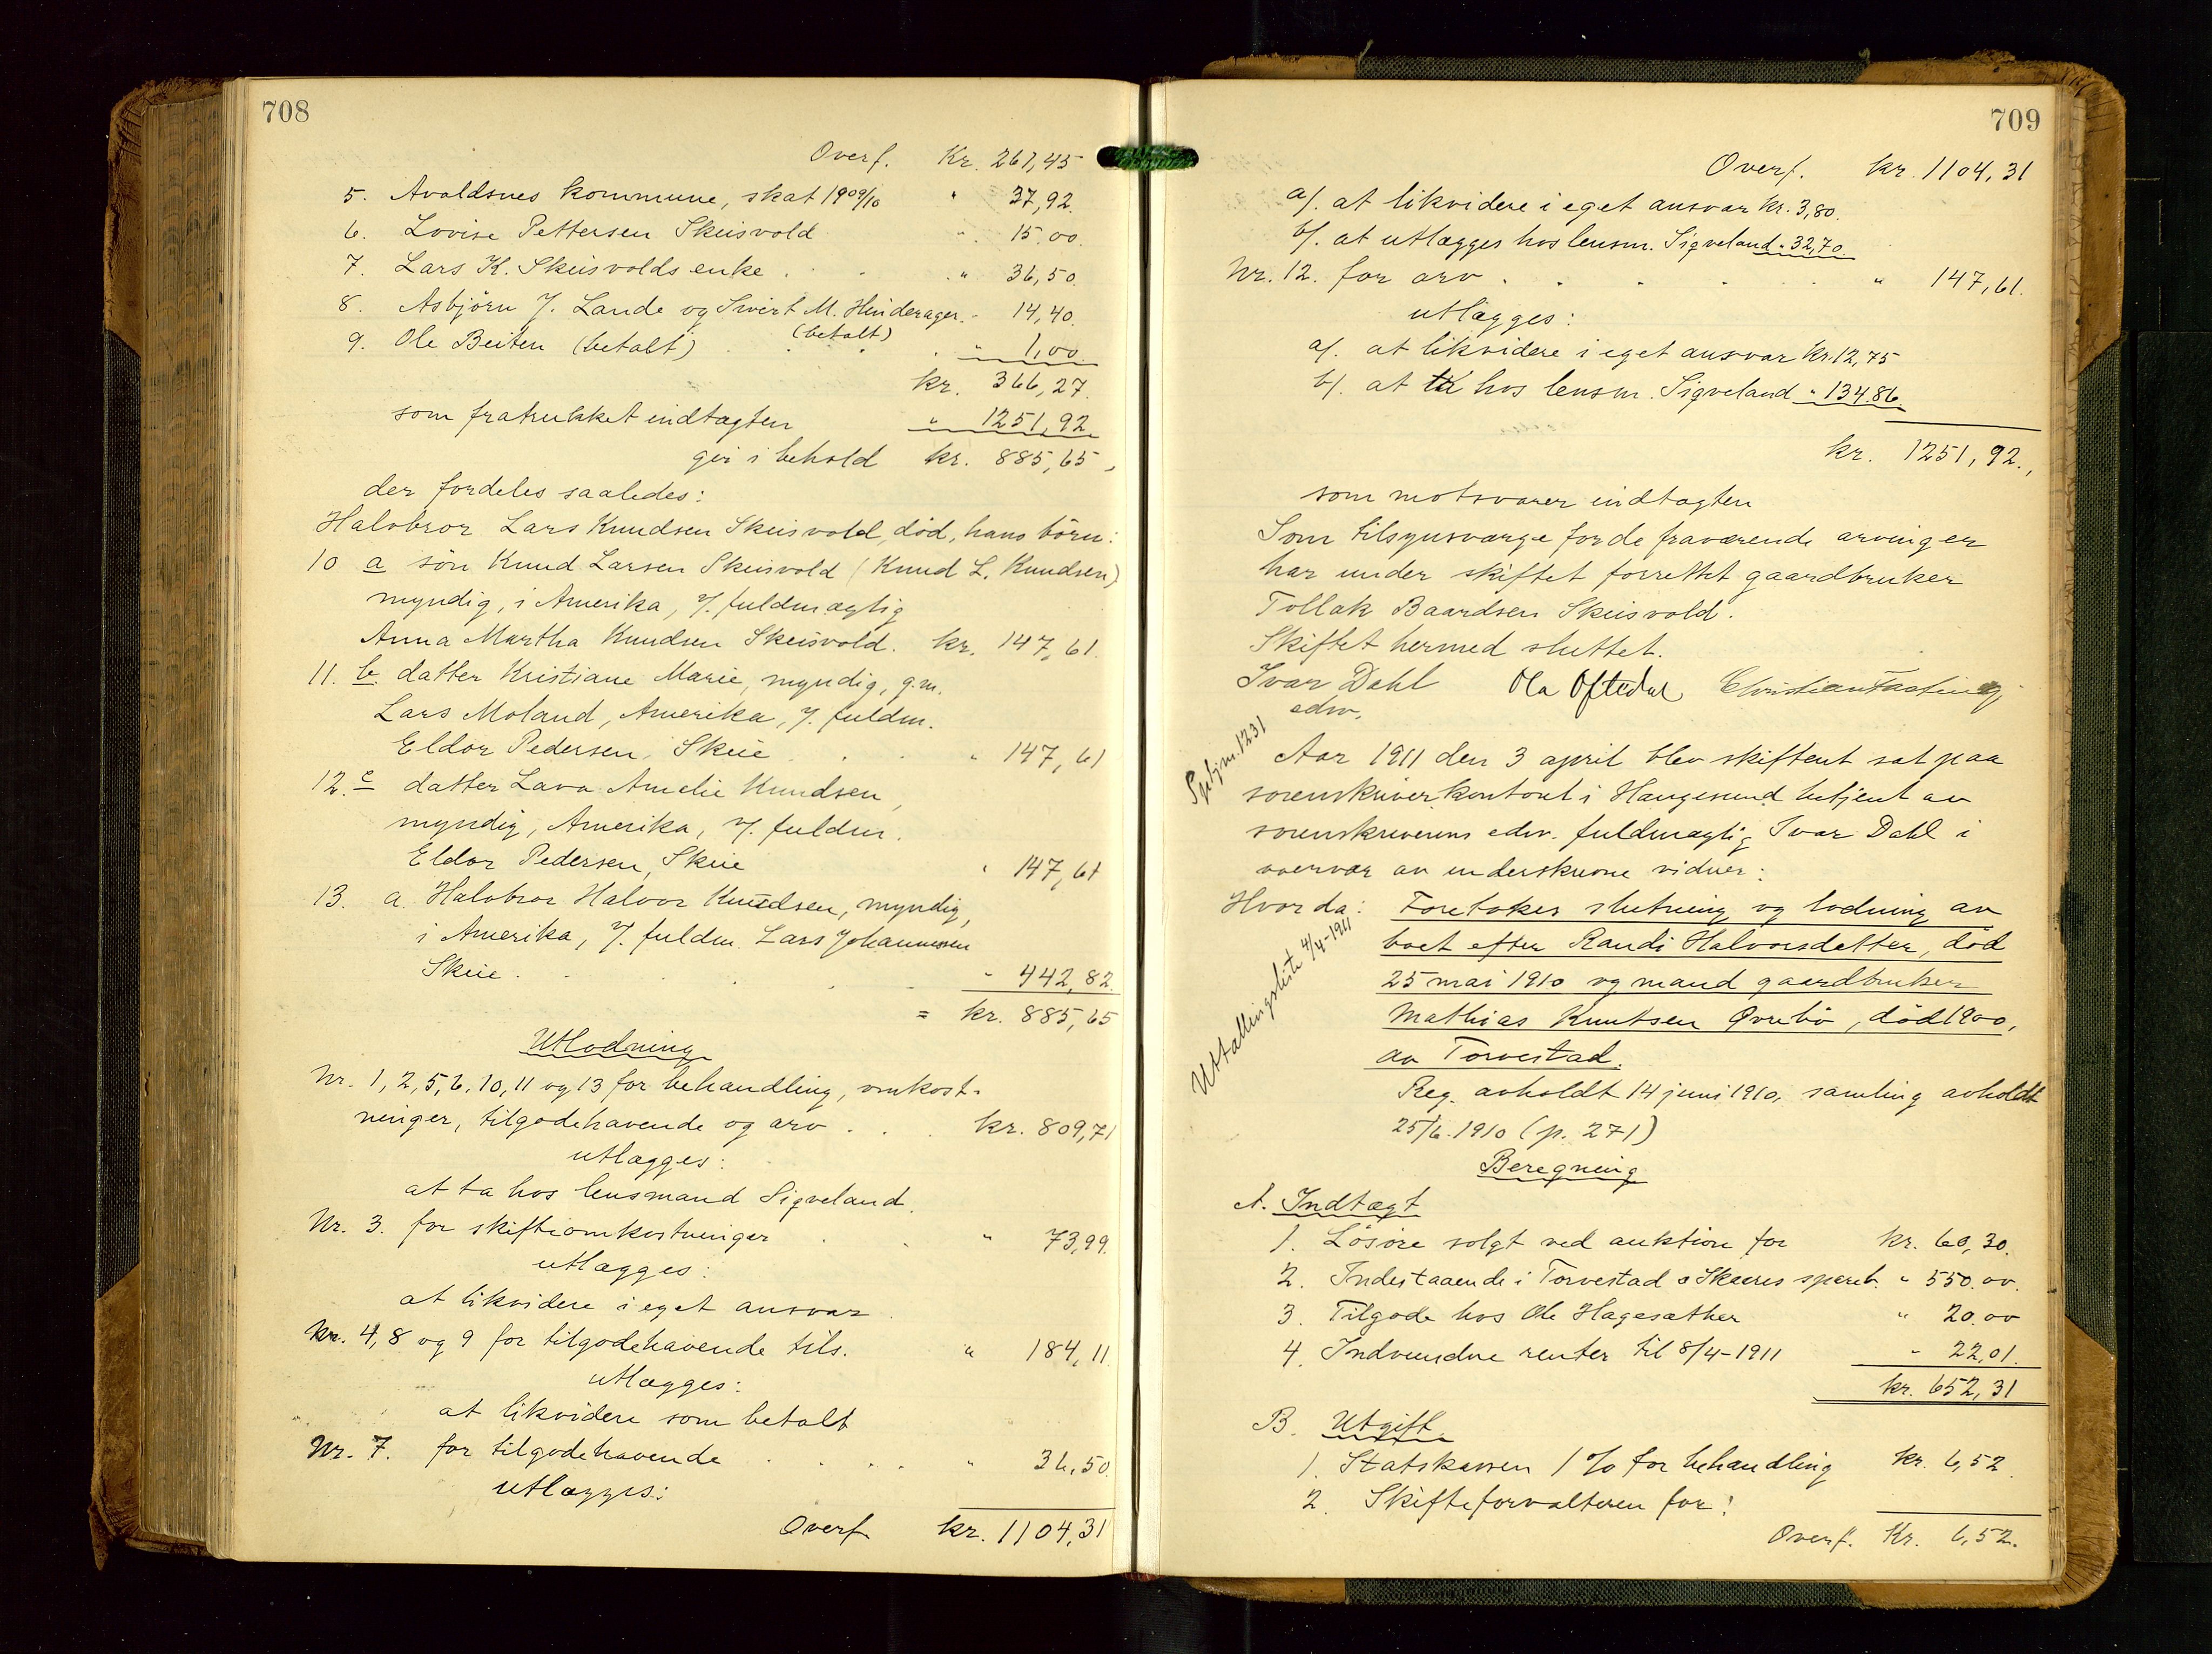 708
Overf. Kr. 261,45
5. Avaldsnes kommune, skat 1909/10 " 37,92.
6. Lovise Pettersen Skeisvold " 15.00.
7. Lars K. Skeisvolds enke . . . " 36,50.
8. Asbjörn J. Lande og Sivert M. Hinderager. " 14,40.
(betalt)
9. Ole Beiten (betalt) . . . . " 1,00.
kr. 366,27.
som fratrukket indtægten " 1251,92
gir i behold kr. 885,65,
der fordeles saaledes:
Halvbror Lars Knudsen Skeisvold, död, hans börn:
10 a sön Knud Larsen Skeisvold (Knud L. Knudsen)
myndig, i Amerika, f. fuldmægtig
Anna Martha Knudsen Skeisvold. kr. 147,61.
11. b. datter Kristiane Marie, myndig, g.m.
Lars Moland, Amerika, f. fuldm.
Eldor Pedersen, Skeie . . . " 147,61
12. c datter Lava Amelie Knudsen,
myndig, Amerika, f. fuldm.
Eldor Pedersen, Skeie " 147,61
13. a. Halvbror Halvor Knudsen, myndig,
i Amerika, f. fuldm. Lars Johannessen
Skeie . . . . . " 442,82.
= kr. 885,65
Utlodning
Nr. 1, 2, 5, 6, 10, 11 og 13 for behandling, omkost-
ninger, tilgodehavende og arv . . . kr. 809,71
utlægges:
at ta hos lensmand Sigveland.
Nr. 3. for skifteomkostninger . . " 73,99.
utlægges:
at likvidere i eget ansvar
Nr. 4, 8 og 9 for tilgodehavende tils. " 184,11
utlægges:
at likvidere som betalt
Nr. 7. for tilgodehavende . . . . " 36,50.
utlægges:
Overf kr. 1104,31
709
Overf. kr. 1104,31
a/. at likvidere i eget ansvar kr. 3,80.
b/. at utlægges hos lensm. Sigveland " 32,70.
Nr. 12. for arv . . . . . " 147,61.
utlægges:
a/. at likvidere i eget ansvar kr. 12,75
b/. at ta hos lensm. Sigveland " 134.86.
kr. 1251,92.,
som motsvarer indtægten
Som tilsynsværge for de fraværende arvinger
har under skiftet forrettet gaardbruker
Tollak Baardsen Skeisvold.
Skiftet hermed sluttet.
Ivar Dahl Ola Oftedal Christian Fasting
edsv.
Aar 1911 den 3 april blev skifteret sat paa
sorenskriverkontoret i Haugesund betjent av
sorenskriverens edsv. fuldmægtig Ivar Dahl i
overvær av underskrevne vidner:
Hvor da: Foretokes slutning og lodning av
boet efter Randi Halvorsdatter, död
25 mai 1910 og mand gaardbruker
Mathias Knutsen Øvrebö, död 1900,
av Torvestad.
Utallingsliste 4/4-1911
Reg. avholdt 14 juni 1910, samling avholdt
25/6. 1910 (p. 271)
Beregning
A. Indtægt
1. Lösöre solgt ved auktion for kr. 60,30.
2. Indestaaende i Torvestad o Skaares spareb. " 550.00.
3. Tilgode hos Ole Hagesæther " 20.00
4. Indvundne renter til 8/4-1911 " 22,01.
kr. 652,31
B. Utgift.
1. Statskassen 1 % for behandling kr. 6,52.
2. Skifteforvalteren for:
Overf. Kr. 6,52.